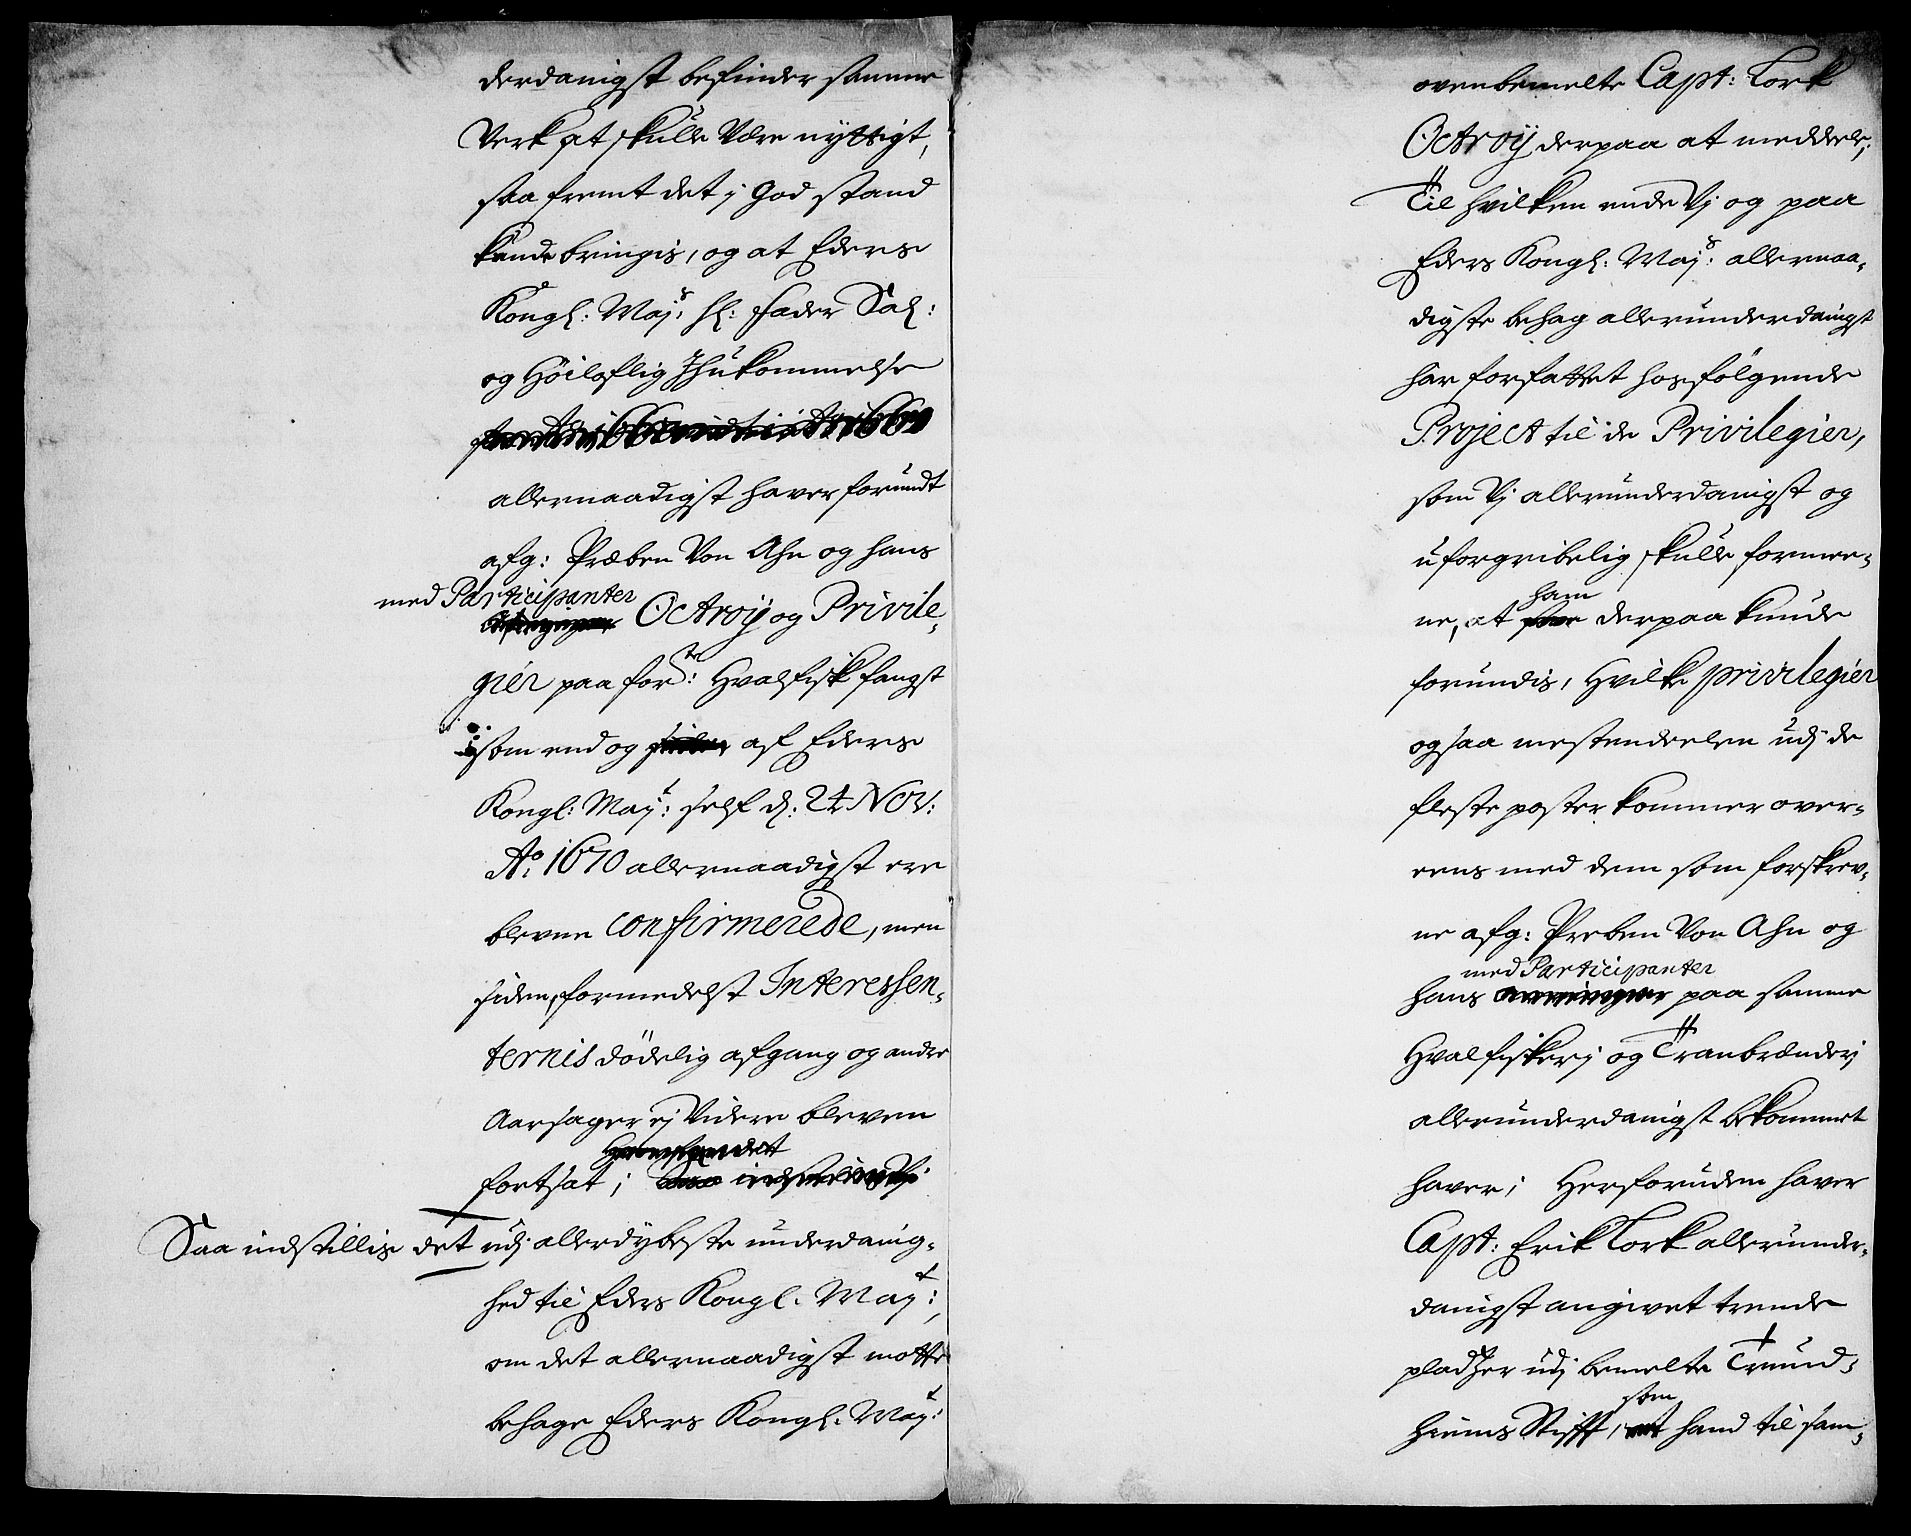 derdanigst befinder samme
Verk at skulle Være nyttigt,
saa fremt det j God stand
kunde bringis, og at Eders
Kongl: Maj:s hl: fader Sal:
og Höiloflig Ihukommelse
allernaadigst haver forundt
afg: Præben Von Ahn og hans
med Participanter
Octroÿ og Privile,
gier paa for:te Hvalfisk fangst
som end og af Eders
Kongl: Maj:t self d: 24 Nov:
Ao: 1670 allernaadigst ere
blevne confirmerede, men
siden, formedelst Interessen,
ternis dödelig afgang og andre
Aarsager ej Videre bleven
fortsat;
Saa indstillis det udj allerdybeste underdanig,
hed til Eders Kongl: Maj:t,
om det allernaadigst motte
behage Eders Kongl: Maj:t
ovenbemelte Capt: Lork
Octroÿ derpaa at meddele;
Til hvilken ende Vj og paa
Eders Kongl: Maj:s allernaa,
digste behag allerunderdanigst
har forfattet hosfölgende
Project til de Privilegier,
som Vj allerunderdanigst og
uforgribelig skulle formee,
ham
ne, at derpaa kunde
forundis, Hvilke privilegier
ogsaa mestendeelen udj de
fleste poster kommer over,
eens med dem som forskrev,
ne afg: Preben Von Ahn og
med Participanter
hans paa samme
Hvalfiskerj og Tranbrænderj
allerunderdanigst bekommet
haver; Herforuden haver
Capt: Erik Lork allerunder,
danigst angivet trende
pladtzer udj bemelte Trund,
som
hiems Stifft, hand til sam,